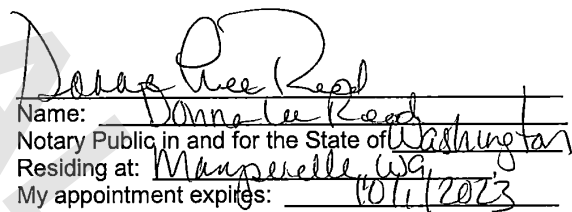 Donna Lee Reed
Name: Donna Lee Reed
Notary Public in and for the State of Washington
Residing at: WA
My appointment expires: 10/1/2023